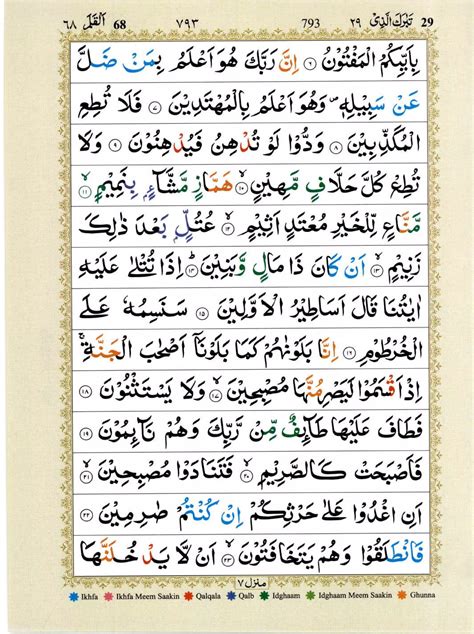 29 تَبٰرَكَ الَّذِىْ ٢٩ 793 ٧٩٣ 68 اَلْقَلَم ٦٨
بِاَيِّكُمُ الْمَفْتُوْنُ ۝٦ اِنَّ رَبَّكَ هُوَ اَعْلَمُ بِمَنْ ضَلَّ
عَنْ سَبِيْلِهٖ وَهُوَ اَعْلَمُ بِالْمُهْتَدِيْنَ ۝٧ فَلَا تُطِعِ
الْمُكَذِّبِيْنَ ۝٨ وَدُّوْا لَوْ تُدْهِنُ فَيُدْهِنُوْنَ ۝٩ وَلَا
تُطِعْ كُلَّ حَلَّافٍ مَّهِيْنٍ ۝١٠ هَمَّازٍ مَّشَّآءٍۭ بِنَمِيْمٍ ۝١١
مَّنَّاعٍ لِّلْخَيْرِ مُعْتَدٍ اَثِيْمٍ ۝١٢ عُتُلٍّۭ بَعْدَ ذٰلِكَ
زَنِيْمٍ ۝١٣ اَنْ كَانَ ذَا مَالٍ وَّبَنِيْنَ ۝١٤ اِذَا تُتْلٰى عَلَيْهِ
اٰيٰتُنَا قَالَ اَسَاطِيْرُ الْاَوَّلِيْنَ ۝١٥ سَنَسِمُهٗ عَلَى
الْخُرْطُوْمِ ۝١٦ اِنَّا بَلَوْنٰهُمْ كَمَا بَلَوْنَآ اَصْحٰبَ الْجَنَّةِ ۚ
اِذْ اَقْسَمُوْا لَيَصْرِمُنَّهَا مُصْبِحِيْنَ ۝١٧ وَلَا يَسْتَثْنُوْنَ ۝١٨
فَطَافَ عَلَيْهَا طَآئِفٌ مِّنْ رَّبِّكَ وَهُمْ نَآئِمُوْنَ ۝١٩
فَاَصْبَحَتْ كَالصَّرِيْمِ ۝٢٠ فَتَنَادَوْا مُصْبِحِيْنَ ۝٢١
اَنِ اغْدُوْا عَلٰى حَرْثِكُمْ اِنْ كُنْتُمْ صٰرِمِيْنَ ۝٢٢
فَانْطَلَقُوْا وَهُمْ يَتَخَافَتُوْنَ ۝٢٣ اَنْ لَّا يَدْخُلَنَّهَا
منزل ٧
Ikhfa Ikhfa Meem Saakin Qalqala Qalb Idghaam Idghaam Meem Saakin Ghunna